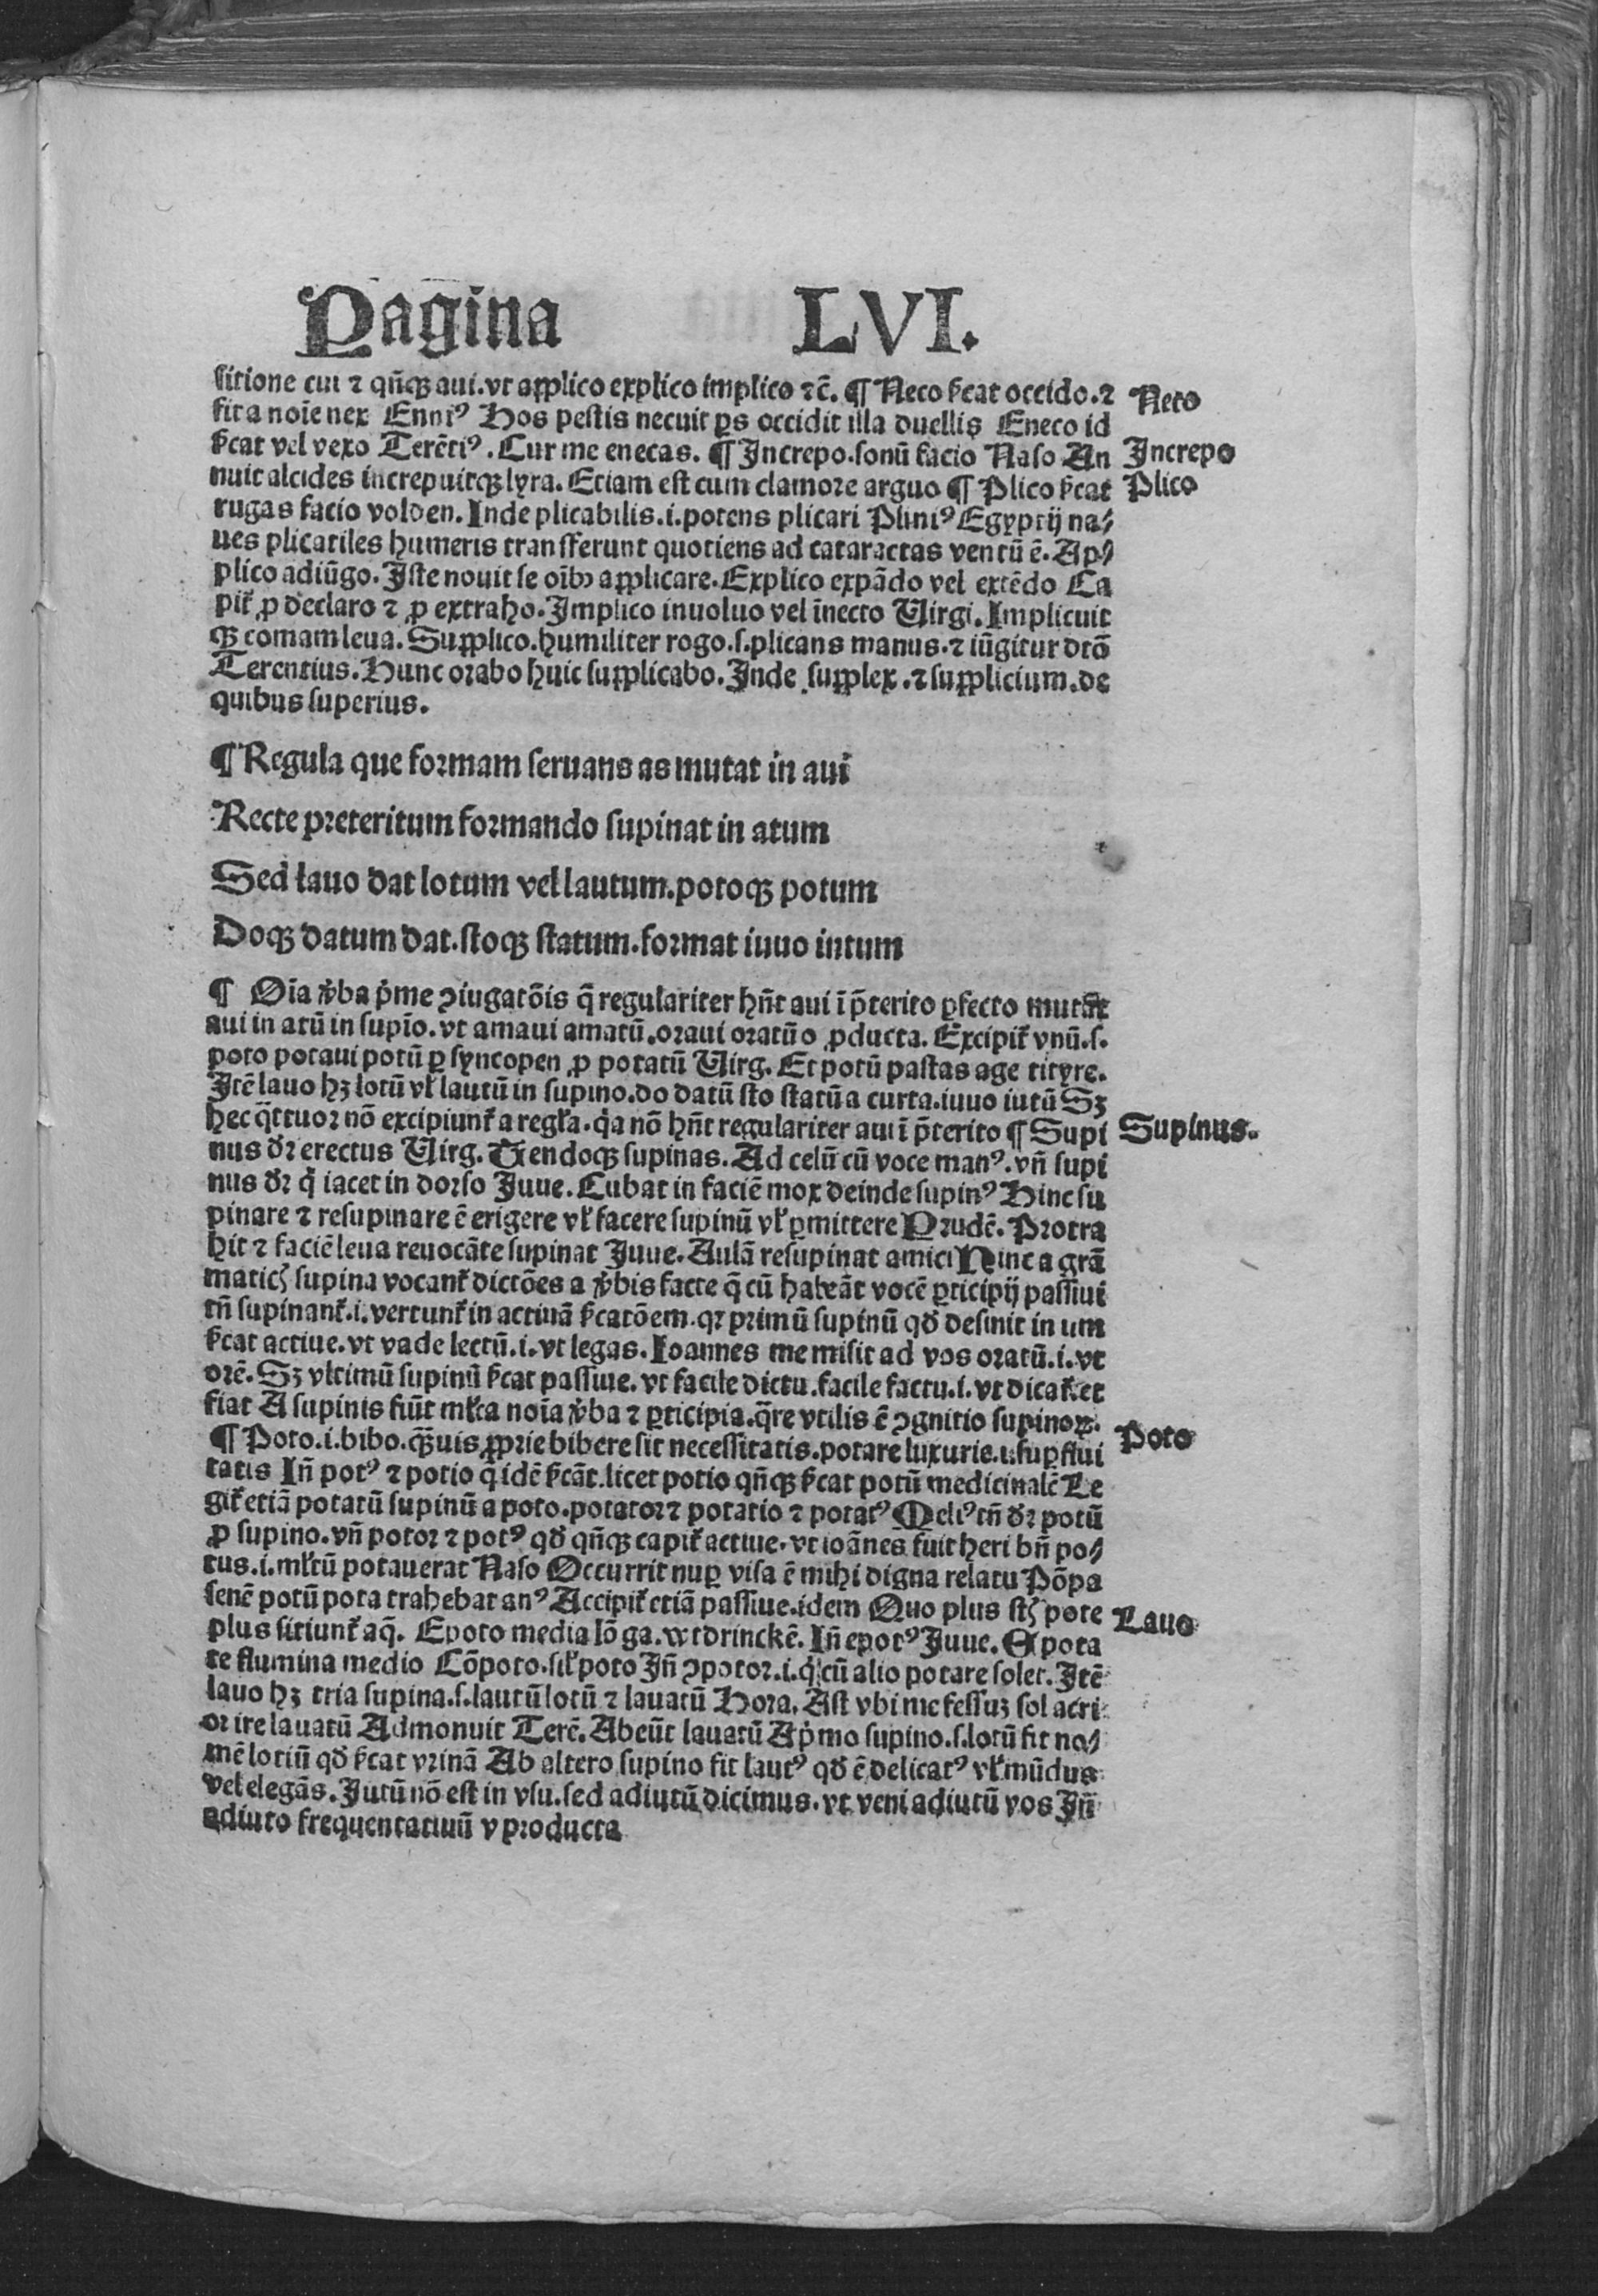 Pagina LVI.
sitione cui ⁊ qñqꝫ aui. vt applico explico implico ⁊c̄. ¶ Neco ſcat occido. ⁊
fit a noīe nex Enniꝰ Hos pestis necuit ꝑs occidit illa duellis Eneco id
ſcat vel vexo Terētiꝰ. Cur me enecas. ¶ Increpo. sonū facio Naso An
nuit alcides increpuitqꝫ lyra. Etiam est cum clamore arguo ¶ Plico ſcat
rugas facio volden. Inde plicabilis. i. potens plicari Pliniꝰ Egyptij na⸗
ues plicatiles humeris transferunt quotiens ad cataractas ventū ē. Ap⸗
plico adiūgo. Iste nouit se oībꝰ applicare. Explico expādo vel extēdo Ca
pit᷑ ꝓ declaro ⁊ ꝓ extraho. Implico inuoluo vel īnecto Virgi. Implicuit
qꝫ comam leua. Supplico. humiliter rogo. s. plicans manus. ⁊ iūgitur dtō
Terentius. Hunc orabo huic supplicabo. Inde supplex. ⁊ supplicium. de
quibus superius.
¶ Regula que formam seruans as mutat in aui
Recte preteritum formando supinat in atum
Sed lauo dat lotum vel lautum. potoqꝫ potum
Doqꝫ datum dat. stoqꝫ statum. format iuuo iutum
¶ Oīa v̓ba p̓me ꝯiugatōis q̄ regulariter hn̄t aui ī p̄terito ꝑfecto mutāt
aui in atū in supīo. vt amaui amatū. oraui oratū o ꝓducta. Excipit᷑ vnū. s.
poto potaui potū ꝑ syncopen ꝓ potatū Virg. Et potū pastas age tityre.
Itē lauo hꝫ lotū vl̓ lautū in supino. do datū sto statū a curta. iuuo iutū Sꝫ
hec q̄ttuor nō excipiunt᷑ a regl̓a. q̓a nō hn̄t regulariter aui ī p̄terito ¶ Supi
nus dr̄ erectus Virg. Tendoqꝫ supinas. Ad celū cū voce manꝰ. vn̄ supi
nus dr̄ q̓ iacet in dorso Iuue. Cubat in faciē mox deinde supinꝰ Hinc su
pinare ⁊ resupinare ē erigere vl̓ facere supinū vl̓ ꝑmittere Prudē. Protra
hit ⁊ faciē leua reuocāte supinat Iuue. Aulā resupinat amici Hinc a grā
maticꝭ supina vocant᷑ dictōes a v̓bis facte q̄ cū habeāt vocē ꝑticipij passiui
tn̄ supinant᷑. i. vertunt᷑ in actiuā ſcatōem. qr primū supinū qd̓ desinit in um
ſcat actiue. vt vade lectū. i. vt legas. Ioannes me misit ad vos oratū. i. vt
orē. Sꝫ vltimū supinū ſcat passiue. vt facile dictu. facile factu. i. vt dicat᷑ et
fiat A supinis fiūt ml̓ta noīa v̓ba ⁊ ꝑticipia. q̄re vtilis ē ꝯgnitio supinoꝝ.
¶ Poto. i. bibo. qꝫuis ꝓprie bibere sit necessitatis. potare luxurie. ⁊ suꝑflui
tatis In̄ potꝰ ⁊ potio q̓ idē ſcāt. licet potio qñqꝫ ſcat potū medicinalē Le
git᷑ etiā potatū supinū a poto. potator ⁊ potatio ⁊ potatꝰ Meliꝰ tn̄ dr̄ potū
ꝓ supino. vn̄ potor ⁊ potꝰ qd̓ qñqꝫ capit᷑ actiue. vt ioānes fuit heri bn̄ po⸗
tus. i. ml̓tū potauerat Naso Occurrit nuꝑ visa ē mihi digna relatu Pōpa
senē potū pota trahebat anꝰ Accipit᷑ etiā passiue. idem Quo plus st̄ꝭ pote
plus sitiunt᷑ aq̄. Epoto media lōga. vvtdrinckē. In̄ epotꝰ Iuue. Epota
te flumina medio Cōpoto. sil̓ poto In̄ ꝯpotor. i. q̓ cū alio potare solet. Itē
lauo hꝫ tria supina. s. lautū lotū ⁊ lauatū Hora. Ast vbi me fessuꝫ sol acri
or ire lauatū Admonuit Terē. Abeūt lauatū A p̓mo supino. s. lotū fit no⸗
mē lotiū qd̓ ſcat vrinā Ab altero supino fit lautꝰ qd̓ ē delicatꝰ vl̓ mūdus
vel elegās. Iutū nō est in vsu. sed adiutū dicimus. vt veni adiutū vos In̄
adiuto frequentatiuū v producta
Neco
Increpo
Plico
Supinus.
Poto
Lauo